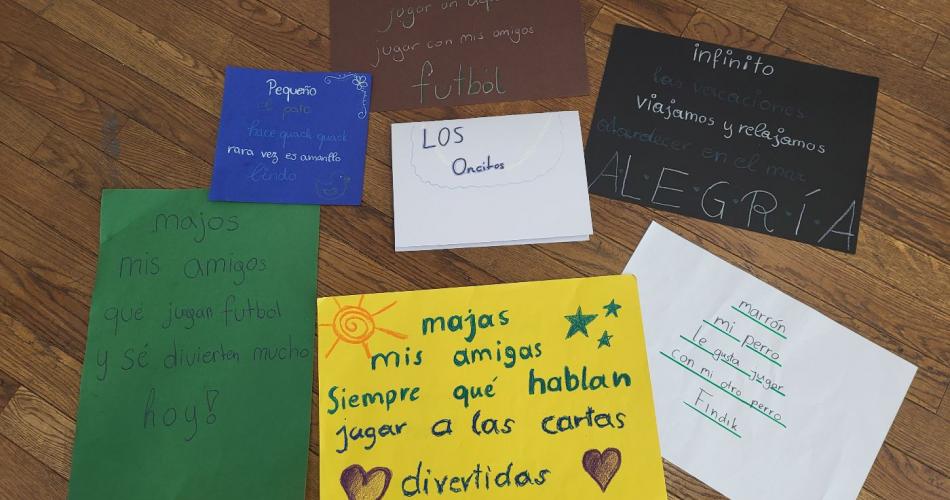 jugar
jugar con mis amigos
futbol
Pequeño
el pato
hace quack quack
rara vez es amarillo
lindo
LOS
Oncitos
infinito
las vacaciones
viajamos y relajamos
atardecer en el mar
ALEGRÍA
majos
mis amigos
que jugan futbol
y sé divierten mucho
hoy!
majas
mis amigas
Siempre qué hablan
jugar a las cartas
divertidas
marrón
mi perro
le gusta jugar
con mi otro perro
Findik